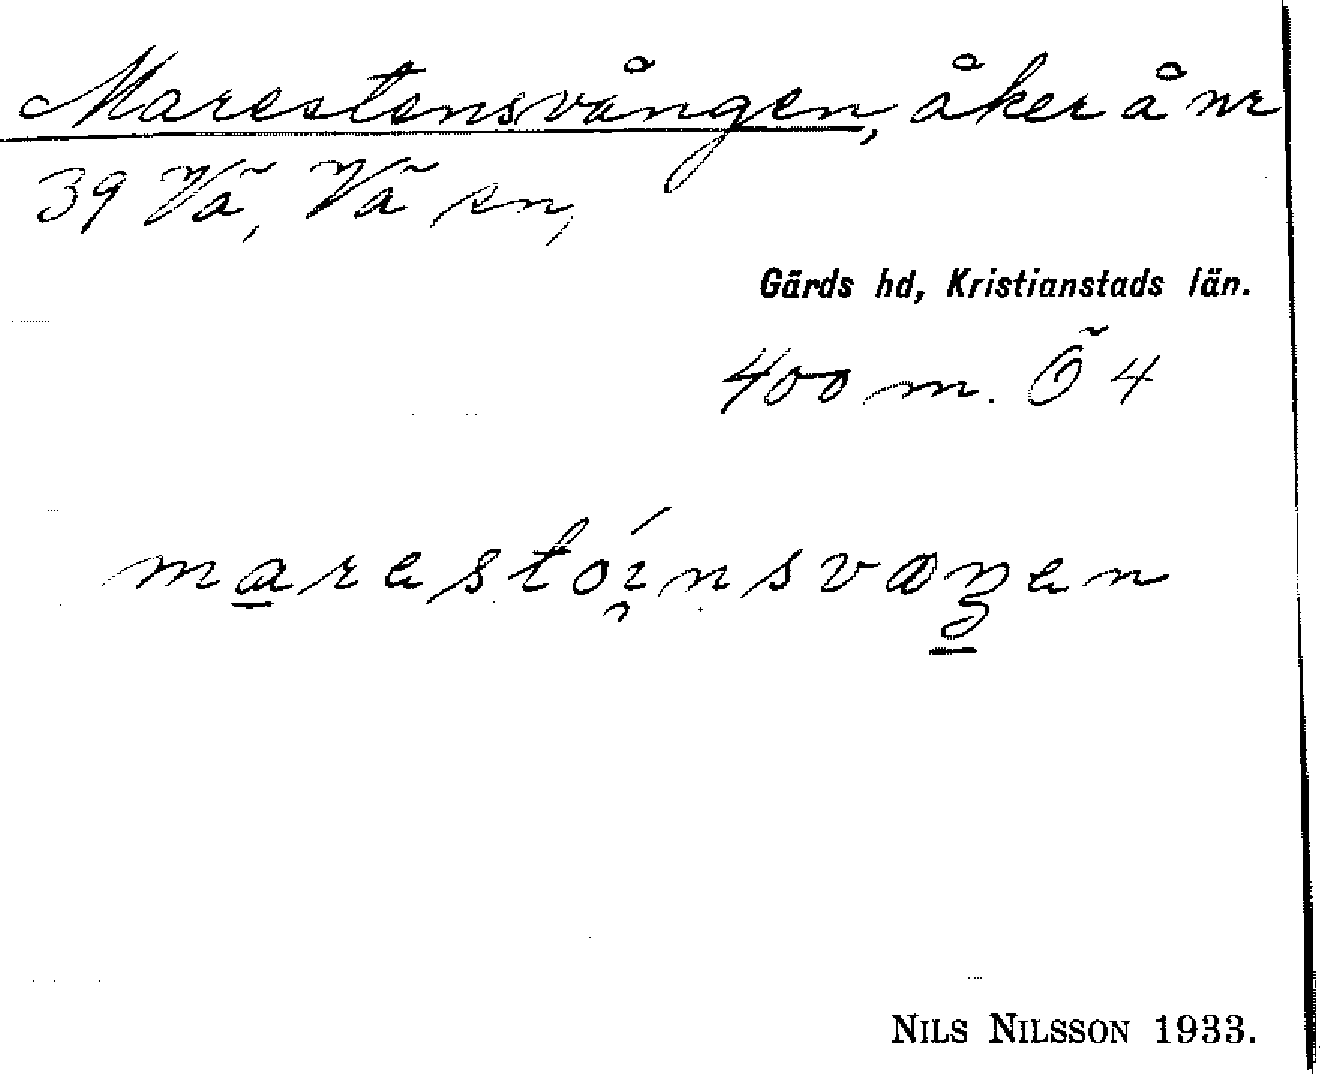 Marestensvången, åker å nr
39 Vä, Vä sn,
Gärds hd, Kristianstads län.
400 m. Ö 4
marestóinsvaŋen
NILS NILSSON 1933.